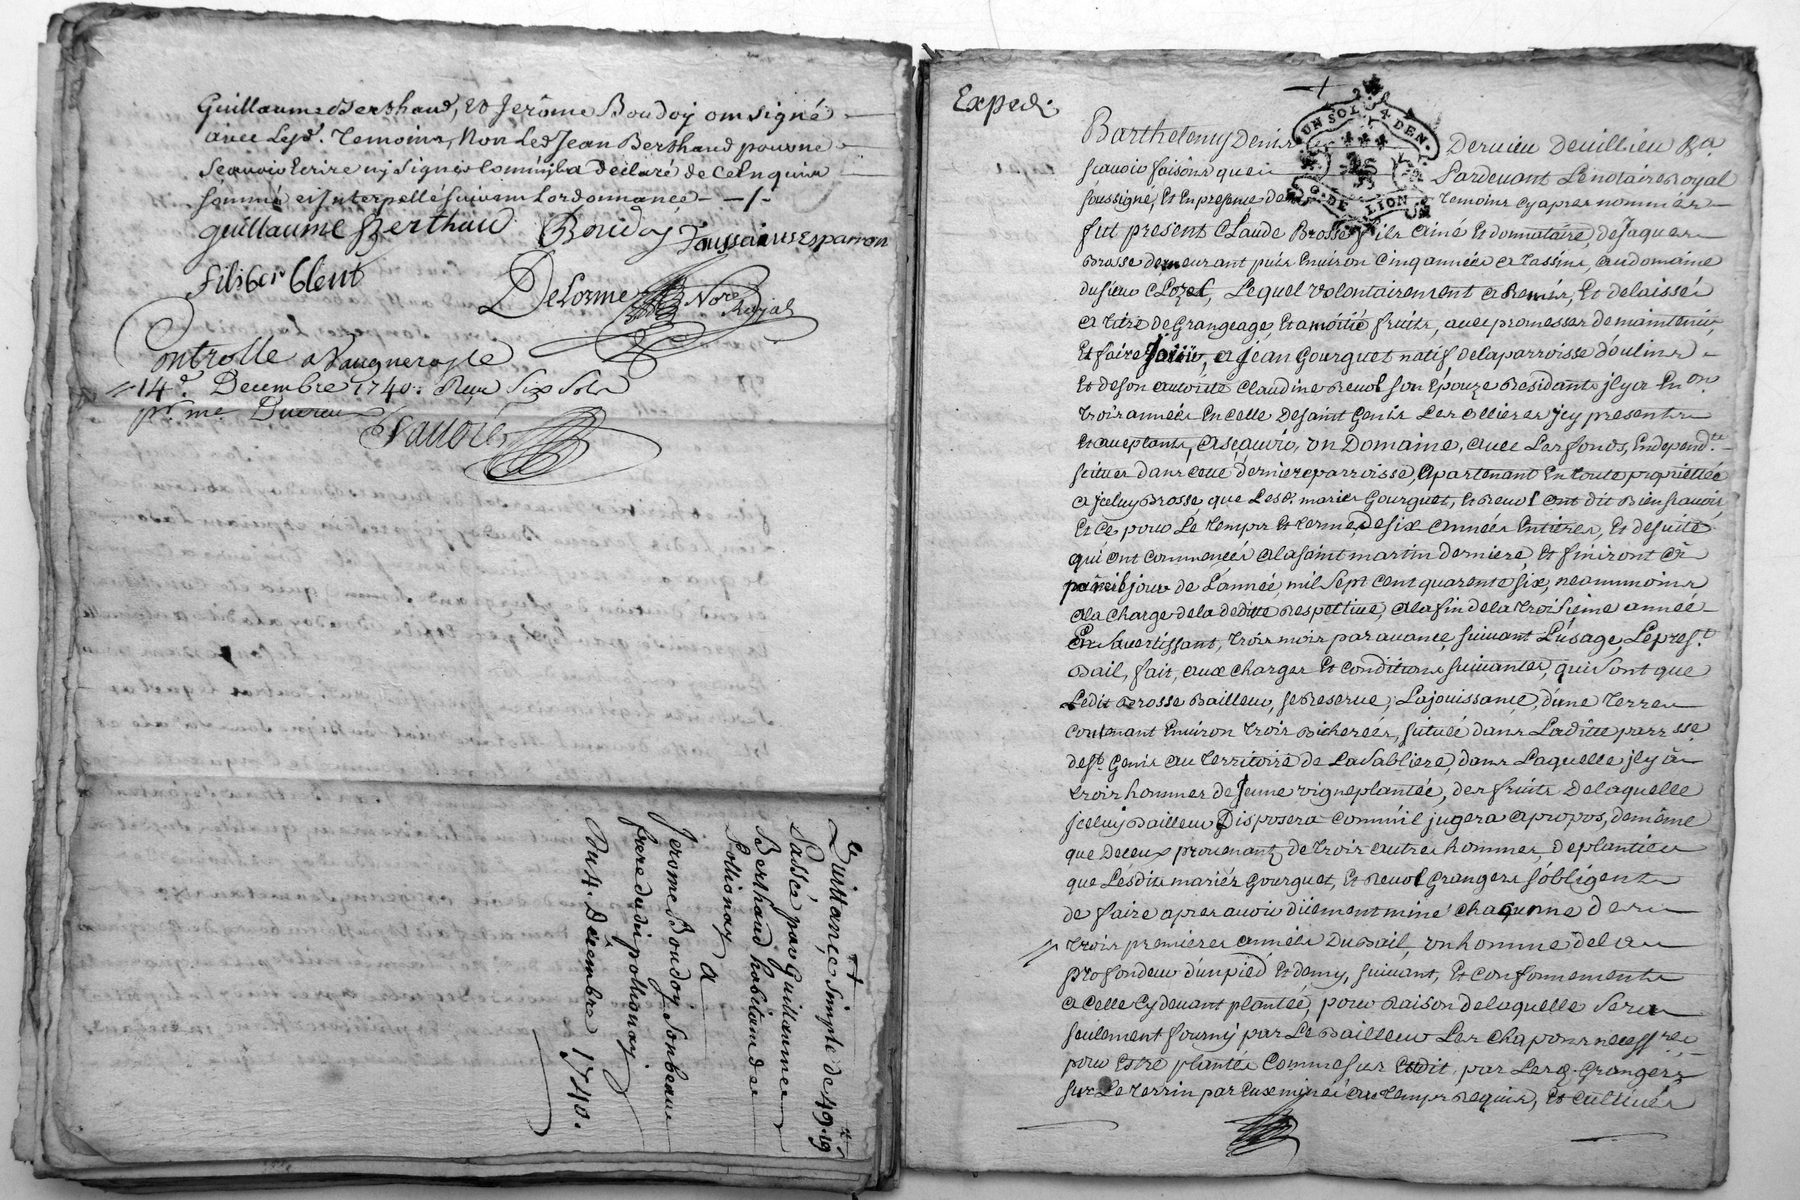 Guillaume Berthaud, et Jerôme Boudoy ont signé
avec Lesd. Temoins, Non Led Jean Berthaud pour ne
Scavoir Ecrire ny Signer Comm'il a declaré de ce Enquis
sommé et Interpellé suivant Lordonnance - -/-
guillaume Berthaud Boudoy Toussaint Esparron
Filiber Clent
Delorme Nore Royal
Controllé a Vaugneray le
14e. Decembre 1740: Reçu Six Sols
pr. me Ducreux
Savoie
Quittance Simple de 49.19
Passée par Guillaume
Berthaud habitant de
Pollionay
a
Jerome Boudoy son beau
frere dudit pollionay
Du 4. Decembre 1740.
Exped.
UN SOL 4 DEN.
G. DE LION
Barthelemy Denis Dervieu Devillieu Bn
scavoir faisons que Pardevant Le notaire Royal
soussigné, Et En presence des temoins cy apres nommés
fut present Claude Brosse fils ainé Et donnataire, de Jaques
Brosse demeurant puis Environ Cinq années a Tassins, au domaine
du sieur Clozel, Lequel volontairement a Remis, Et delaissé
a titre de Grangeage, Et a moitié fruits, avec promesses de maintenir,
Et faire Jouir, a Jean Gourguet natif de la parroisse d'oulins
Et de son autorité Claudine Revol son Epouze Residants il y a Enon
trois années En celle de saint Genis Les ollieres icy presents
Et acceptants, a scavoir, un Domaine, avec Les fonds, Independts
scitués dans cette derniere parroisse, apartenant En toute proprieté
a iceluy Brosse que Lesd. mariés Gourguet, Et Revol ont dit Bien scavoir
Et ce pour Le temps Et terme, de six années Entieres, Et de suitte
qui ont commencées a la saint martin derniere, Et finiront a
pareil jour de L'année, mil sept cent quarente six, neanmmoins
a la charge de la deditte Respettive, a la fin de la troisieme année
En s'avertissant, trois mois par avance, suivant L'usage, Le prest.
Bail, fait, aux charges Et conditions suivantes, qui sont que
Ledit Brosse Bailleur, se Reserve, La jouissance, d'une terre
contenant Environ trois Bicherées, scituée dans Laditte parrsse
de st. Genis au territoire de La Sabliere, dans Laquelle il y a
trois hommes de Jeune vigne plantée, des fruits De laquelle
iceluy Bailleur Disposera comm'il jugera a propos, de même
que De ceux provenant de trois autres hommes, de plantier
que Lesdits mariés Gourguet, Et Revol Grangers s'obligent
de faire apres avoir düement miné chaqunne des
trois premieres années Du Bail, un homme de la
profondeur d'un pied Et demy, suivant, Et conformement
a celle cy devant plantée, pour Raison de laquelle sera
seulement fourny par Le Bailleur Les chapons necessres
pour Estre plantés Comme sus Est dit, par Lesd. Grangers
sur Le terrin par Eux miné au temps Requis, Et cultivés